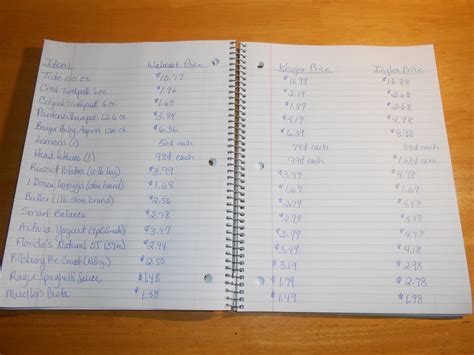 Item Walmart Price
Tide 100 oz $10.77
Crest Toothpaste 6oz $1.96
Colgate Toothpaste 6oz $1.69
Pantene Shampoo 12.6 oz $3.89
Bayer Baby Aspirin 120 ct $6.36
Lemons (1) each
Head lettuce (1) 98¢ each
Russet Potatoes (10 lb bag) $3.99
1 Dozen (store brand) $1.68
Butter 1 lb (store brand) $2.56
Smart Balance $2.78
Activia Yogurt (4pk Greek) $3.47
Florida's Natural OJ (59oz) $2.94
Pillsbury Pie Crust $2.50
Ragu Spaghetti Sauce $1.48
Mueller's Pasta $1.38
Kroger Price Ingles Price
$11.99 $16.88
$2.19 $2.68
$2.68
$4.19 $4.98
$6.39
each each
99¢ each $1.68 each
$3.99
$2.79
$2.99
$3.99
$3.49 $4.18
$3.19 $2.98
$1.79 $2.78
$1.49 $1.98